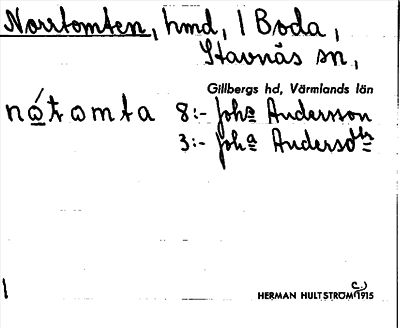 Norrtomten, hmd, 1 Boda,
Stavnäs sn,
Gillbergs hd, Värmlands län
nó̲t o m t a 8:- Johs Andersson
3:- Joha Andersdtr
HERMAN HULTSTRÖM 1915